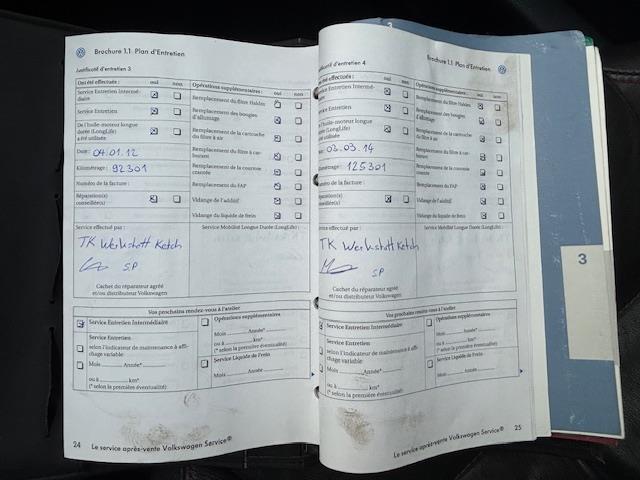 Brochure 1.1 Plan d'Entretien
Justificatif d'entretien 3
Ont été effectués : oui non
Service Entretien Intermé-
diaire
Service Entretien
De l'huile-moteur longue
durée (LongLife)
a été utilisée
Date : 04.01.12
Kilométrage : 92301
Numéro de la facture :
Réparation(s)
conseillée(s)
Opérations supplémentaires : oui non
Remplacement du filtre Haldex
Remplacement des bougies
d'allumage
Remplacement de la cartouche
du filtre à air
Remplacement du filtre à car-
burant
Remplacement de la courroie
crantée
Remplacement du FAP
Vidange de l'additif
Vidange du liquide de frein
Service effectué par :
TK Werkstatt Ketch
SP
Cachet du réparateur agréé
et/ou distributeur Volkswagen
Service Mobilité Longue Durée (LongLife) :
Vos prochains rendez-vous à l'atelier
Service Entretien Intermédiaire
Service Entretien
selon l'indicateur de maintenance à affi-
chage variable
Mois Année*
ou à km*
(* selon la première éventualité)
Opérations supplémentaires
Mois Année*
ou à km*
(* selon la première éventualité)
Service Liquide de Frein
Mois Année
24 Le service après-vente Volkswagen Service®
Brochure 1.1 Plan d'Entretien
Justificatif d'entretien 4
Ont été effectués : oui non
Service Entretien Intermé-
diaire
Service Entretien
De l'huile-moteur longue
durée (LongLife)
a été utilisée
Date : 03.03.14
Kilométrage : 125301
Numéro de la facture :
Réparation(s)
conseillée(s)
Opérations supplémentaires : oui non
Remplacement du filtre Haldex
Remplacement des bougies
d'allumage
Remplacement de la cartouche
du filtre à air
Remplacement du filtre à car-
burant
Remplacement de la courroie
crantée
Remplacement du FAP
Vidange de l'additif
Vidange du liquide de frein
Service effectué par :
TK Werkstatt Ketch
SP
Cachet du réparateur agréé
et/ou distributeur Volkswagen
Service Mobilité Longue Durée (LongLife) :
Vos prochains rendez-vous à l'atelier
Service Entretien Intermédiaire
Service Entretien
selon l'indicateur de maintenance à affi-
chage variable
Mois Année*
ou à km*
(* selon la première éventualité)
Opérations supplémentaires
Mois Année*
ou à km*
(* selon la première éventualité)
Service Liquide de Frein
Mois Année
Le service après-vente Volkswagen Service® 25
3